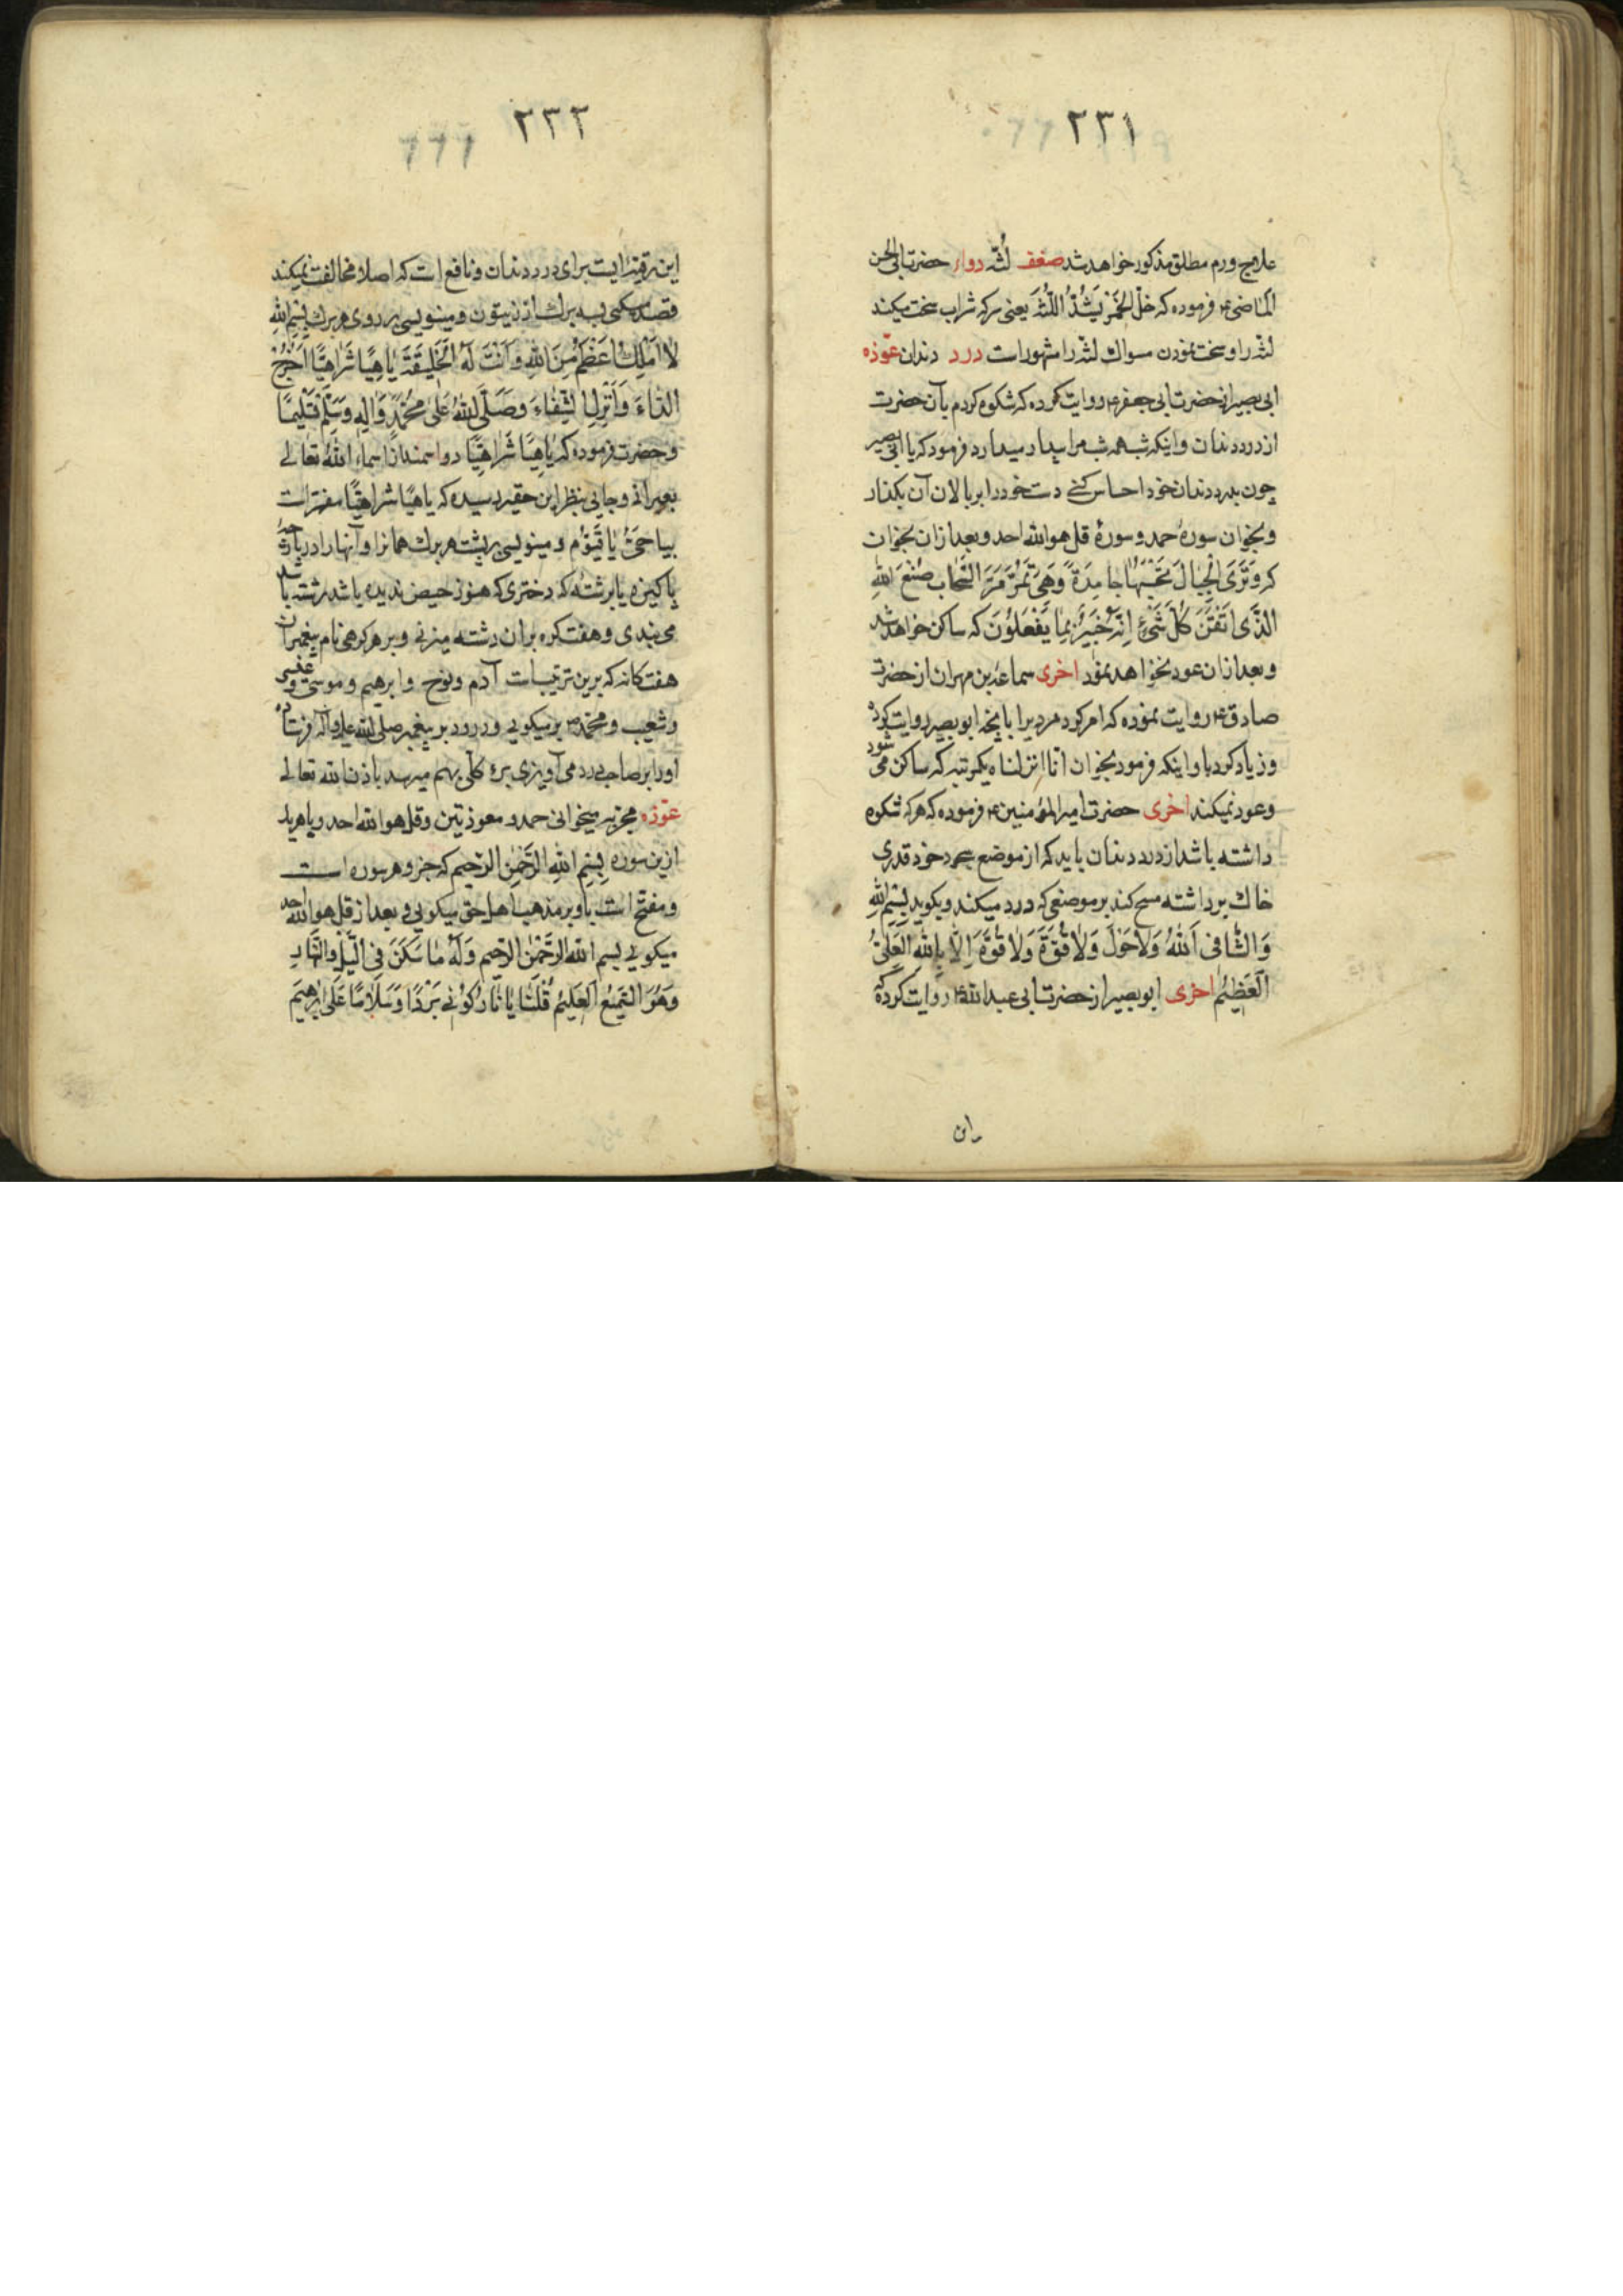 ٢٣١
علاج ورم مطلق مذکور خواهد شد ضعف لثه دواء حضرت ابی الحسن
الماضی ع فرموده که خل الخمر یشد اللثة یعنی سرکه شراب سخت میکند
لثه را و سخت نمودن مسواک لثه را مشهور است درد دندان عوذه
ابی بصیر از حضرت ابی جعفر ع روایت کرده که شکوه کردم بآن حضرت
از درد دندان و اینکه شب همه شب مرا بیدار میدارد فرمود که یا ابی بصیر
چون بدرد دندان خود احساس کنے دست خود را بر بالای آن بگذار
و بخوان سورهٔ حمد و سورهٔ قل هو الله احد و بعد از ان بخوان
که وَتَرَى الْجِبَالَ تَحْسَبُهَا جَامِدَةً وَهِيَ تَمُرُّ مَرَّ السَّحَابِ صُنْعَ اللهِ
الَّذِى اَتْقَنَ كُلَّ شَىْءٍ اِنَّهُ خَبِيرٌ بِمَا يَفْعَلُونَ که ساکن خواهد شد
و بعد از ان عود نخواهد نمود اخری سماعة بن مهران از حضرت
صادق ع روایت نموده که امر کرد مردیرا بانچه ابو بصیر روایت کرده
و زیاد کرد باو اینکه فرمود بخوان انا انزلناه یکمرتبه که ساکن می شود
و عود نمیکند اخری حضرت امیرالمؤمنین ع فرموده که هر که شکوه
داشته باشد از درد دندان باید که از موضع سجود خود قدری
خاک برداشته مسح کند بر موضعی که درد میکند و بگوید بِسْمِ اللهِ
وَالشَّافِى اَللهُ وَلَا حَوْلَ وَلَا قُوَّةَ وَلَا قُوَّةَ اِلَّا بِاللهِ الْعَلِىُّ
الْعَظِيْمُ اخری ابو بصیر از حضرت ابی عبد الله ع روایت کرده که
این
٢٣٢
این رقیه ایست برای درد دندان و نافع است که اصلا مخالفت نمیکند
قصد میکنی بسه برک از زیتون و مینویسی بر روی هر برک بِسْمِ اللهِ
لَا مَلِكَ اَعْظَمُ مِنَ اللهِ وَاَنْتَ لَهُ الْخَلِيقَةُ يَاهِيًّا شَرَاهِيًّا اَخْرِجْ
الدَّاءَ وَاَنْزِلِ الشِّفَاءَ وَصَلَّى اللهُ عَلَى مُحَمَّدٍ وَآلِهِ وَسَلَّمَ تَسْلِيمًا
و حضرت فرموده که یَاهِیًّا شَرَاهِیًّا دو اسمند از اسماء الله تعالے
بعبرانے و جایی بنظر این حقیر رسیده که یاهیا شراهیا مفسر است
بیا حَیُّ یَا قَیُّوم و مینویسی بر پشت هر برک همانرا و آنها را در پارچه
پاکیزه یا برشتهٔ که دختری که هنوز حیض ندیده باشد رشته باشد
می بندی و هفت کره بران رشته میزنی و بر هر کرهی نام پیغمبران
هفت کانه که برین ترتیب است آدم و نوح و ابرهیم و موسی و عیسی
و شعیب و محمد ص بر میکویی و درود بر پیغمبر صلی الله علیه و آله فرستاده
او را بر صاحب درد می آویزی برء کلی بهم میرسد باذن الله تعالے
عوذه مجربه میخوانی حمد و معوذتین و قل هو الله احد و با هر یک
ازین سوره بسم الله الرحمن الرحیم که جزو هر سوره است
و مفتح است باو بر مذهب اهل حق میکویی و بعد از قل هو الله احد
میکویی بسم الله الرَّحْمٰنِ الرحیم وَلَهُ مَا سَكَنَ فِى الَّيْلِ وَالنَّهَارِ
وَهُوَ السَّمِيْعُ الْعَلِيمُ قُلْنَا يَا نَارُ كُوْنِى بَرْدًا وَسَلَامًا عَلَى اِبْرٰهِيمَ